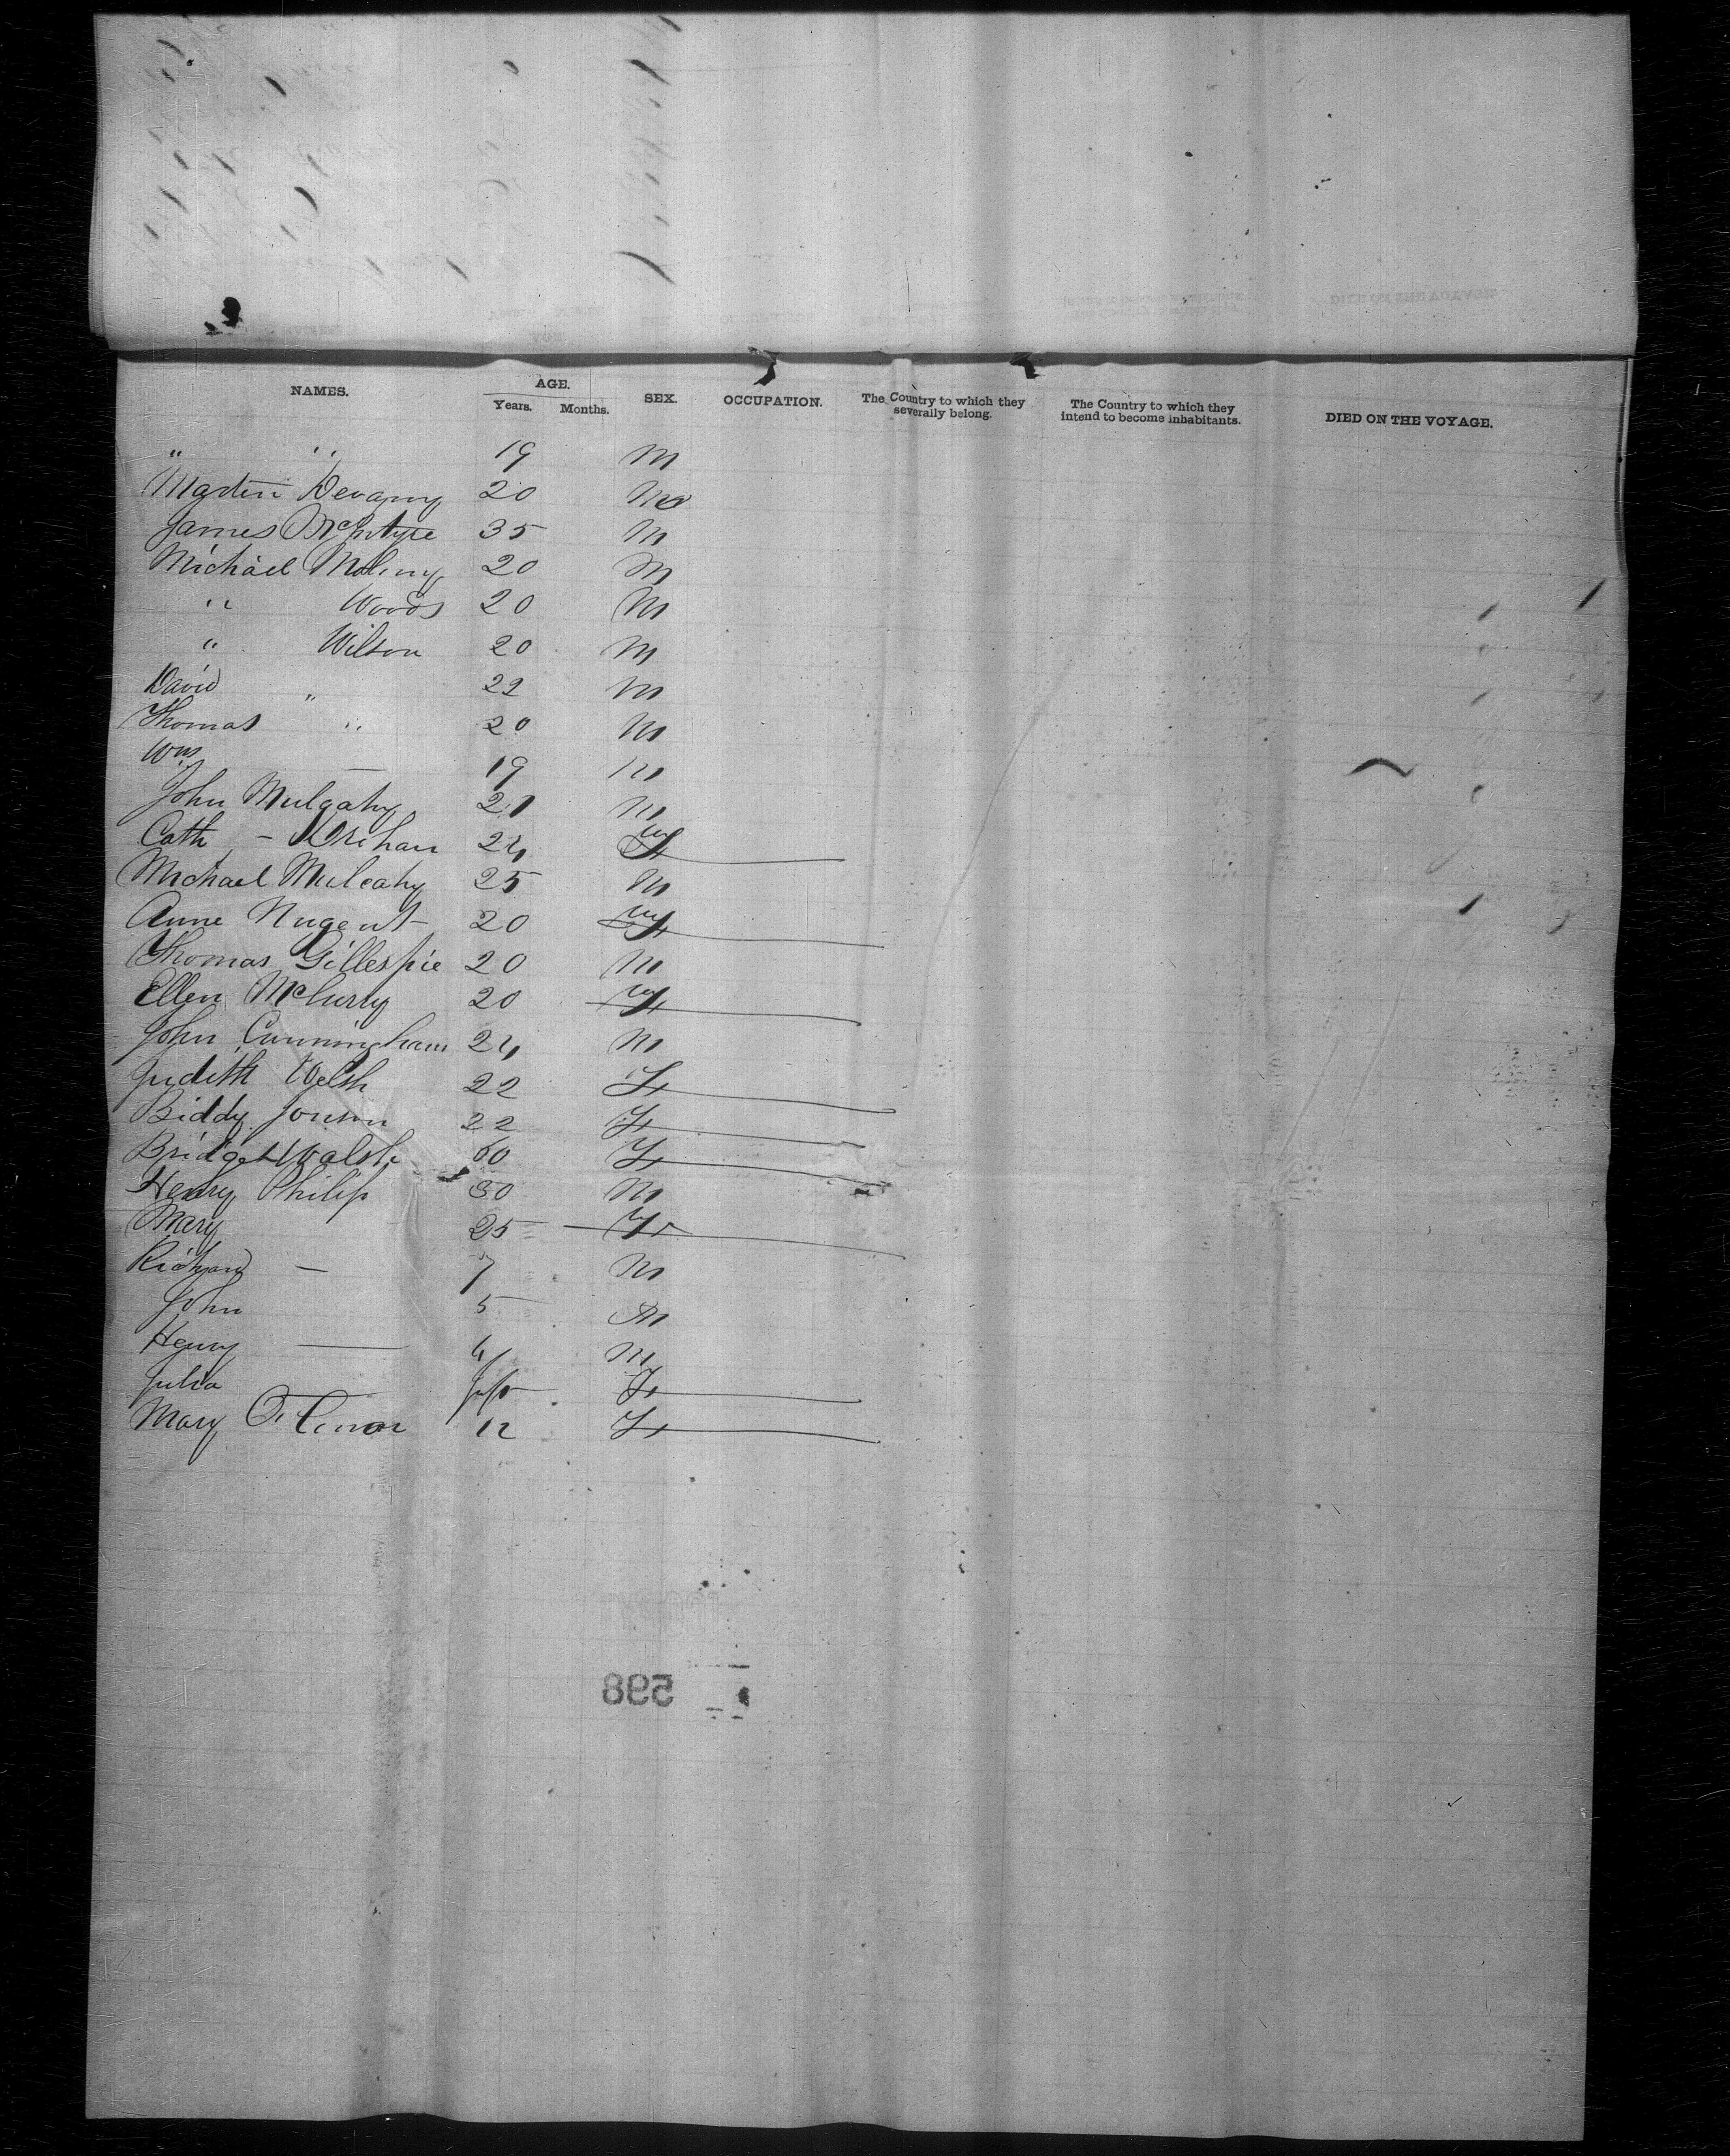 NAMES. AGE. Years. Months. SEX. OCCUPATION. The Country to which they severally belong. The Country to which they intend to become inhabitants. DIED ON THE VOYAGE.
" " 19 M
Martin Devanny 20 M
James McIntyre 35 M
Michael 20 M
" Woods 20 M
" Wilson 20 M
David " 22 M
Thomas " 20 M
Wm — 19 M
John Mulcahy 21 M
Cath — 24 F
Michael Mulcahy 25 M
Anne Nugent 20 F
Thomas Gillespie 20 M
Ellen 20 F
John Cunningham 24 M
Judith Welsh 22 F
Biddy 22 F
Bridget Walsh 60 F
Henry Philip 30 M
Mary 25 F
Richard — 7 M
John 5 M
Henry — 4 M
Julia — F
Mary O. 12 F
598